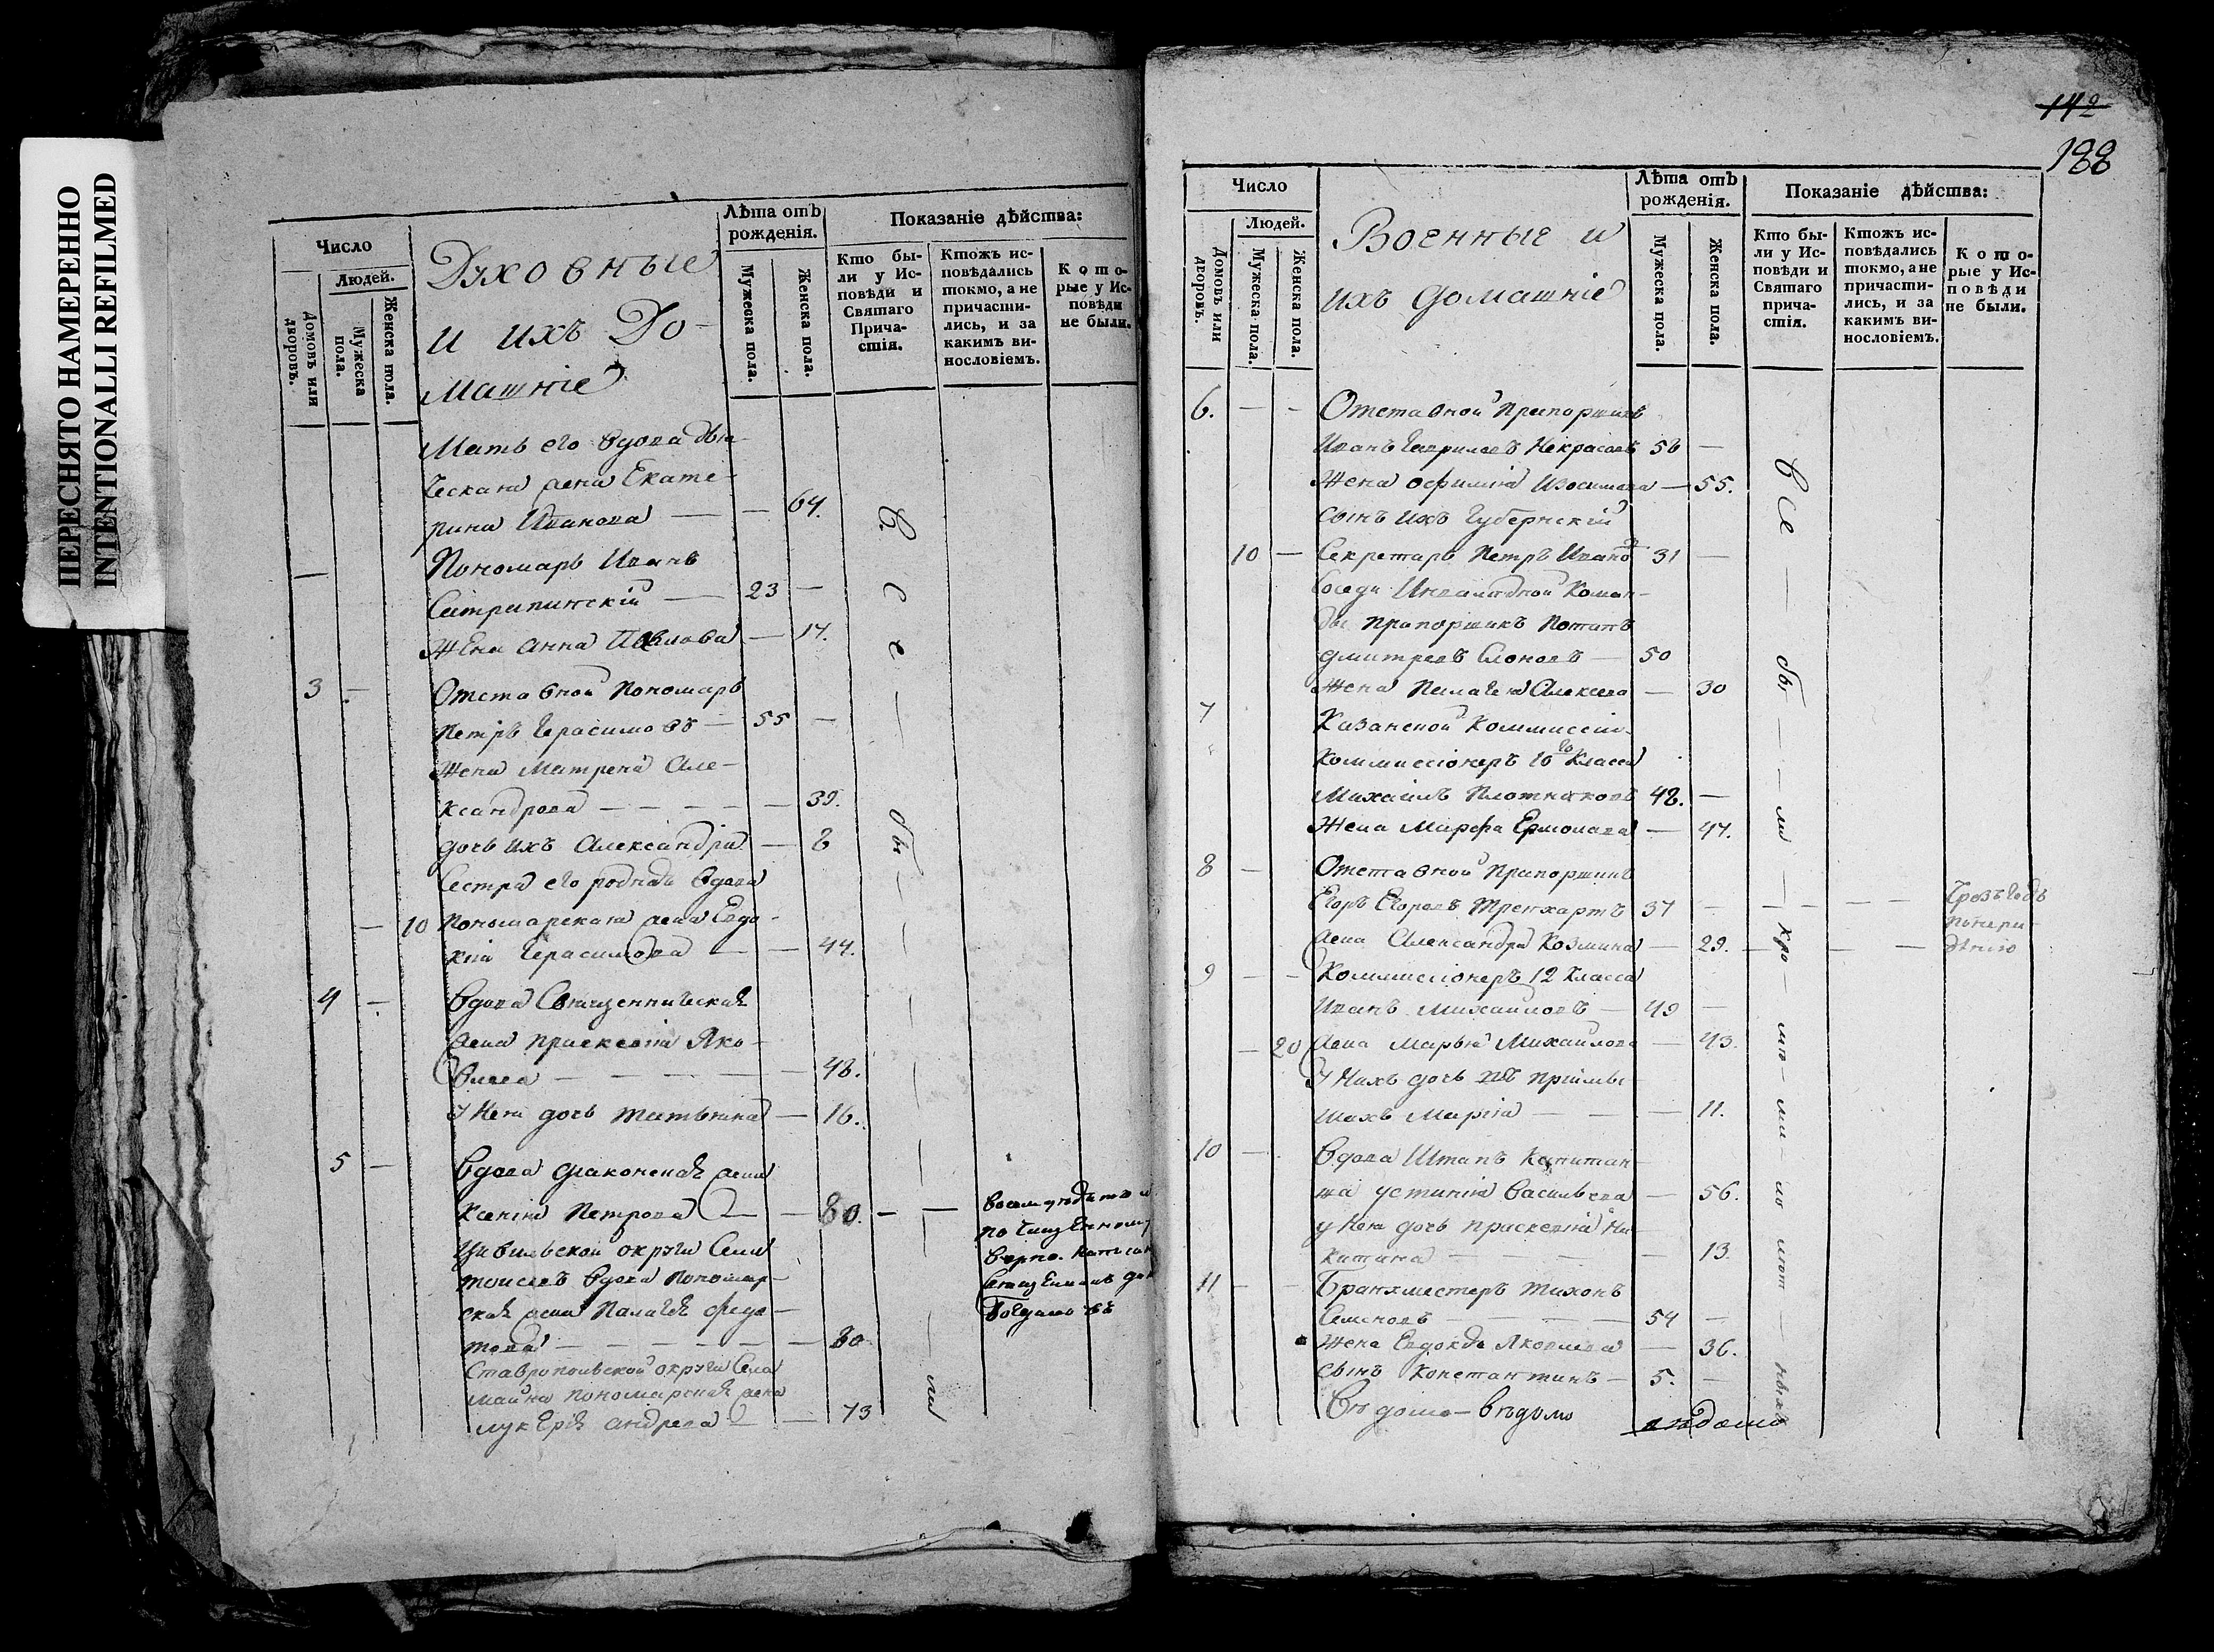 ПЕРЕСНЯТО НАМЕРЕННО
INTENTIONALLI REFILMED
Число
Людей.
Домовъ или дворовъ.
Мужеска пола.
Женска пола.
Духовные
и ихъ До-
машніе
Лѣта отъ рожденія.
Мужеска пола.
Женска пола.
Показаніе дѣйства:
Кто бы-
ли у Ис-
повѣди и
Святаго
Прича-
стія.
Ктожъ ис-
повѣдались
токмо, а не
причасти-
лись, и за
какимъ ви-
нословіемъ.
Кото-
рые у Ис-
повѣди
не были.
Мать его вдова дья-
ческая жена Екате-
рина Иванова — — 64.
— Пономарь Иванъ
— 23 —
Жена Анна Павлова — 17.
3 — Отставной Пономарь
Петръ Герасимовъ — 55 —
Жена Матрена Але-
ксандрова — — — — — 39.
дочь ихъ Александра — 8
Сестра его родная вдова
— 10 Пономарская жена Евдо-
кія Герасимова — — 44.
4 — вдова Священническая
жена Праскевія Яко-
влева — — — — — 48.
У Нея дочь Татьяна — 16.
5 — вдова діаконская жена
Ксенія Петрова — — 80. — —
Цивильской округи Села
вдова Пономар-
ская жена Палагея Федо-
това — — — — — — 80
Ставропольской округи Села
Майна пономарская жена
Андреева — — 73
все — бы — ли
142
188
Число
Людей.
Домовъ или дворовъ.
Мужеска пола.
Женска пола.
Военные и
ихъ домашніе
Лѣта отъ рожденія.
Мужеска пола.
Женска пола.
Показаніе дѣйства:
Кто бы-
ли у Ис-
повѣди и
Святаго
прича-
стія.
Ктожъ ис-
повѣдались
токмо, а не
причасти-
лись, и за
какимъ ви-
нословіемъ.
Кото-
рые у Ис-
повѣди
не были.
6. — — Отставной Прапорщикъ
Иванъ Гавриловъ Некрасовъ 56 —
Жена Офимія Изосимова — 55.
сынъ ихъ Губернскій
10 — Секретарь Петръ Ивановъ 31 —
Инвалидной Коман-
ды Прапорщикъ Потапъ
Дмитревъ Слоновъ — 50
Жена Пелагея Алексеева — 30
7 Казанской Коммиссіи
Коммиссіонеръ 10го Класса
Михаилъ Плотниковъ 48. —
Жена Марфа Ермолаева — 47.
8 — Отставной Прапорщикъ
Егоръ Егоровъ Тренхартъ 37 — — — —
жена Александра Козмина — 29. — — —
9 — — Коммиссіонеръ 12 Класса
Иванъ Михайловъ — 49 —
— 20 жена Марья Михайлова — 43.
У Нихъ дочь въ пріймы-
шахъ Марія — — — 11.
10 — вдова Штапъ Капитан-
ша Устинія Васильева — 56.
у Нея дочь Праскевія Ни-
китина — — — — — 13.
11 — — Брантместеръ Тихонъ
Семеновъ — — — — 54 —
Жена Евдокія Яковлева — 36.
сынъ Константинъ — 5. —